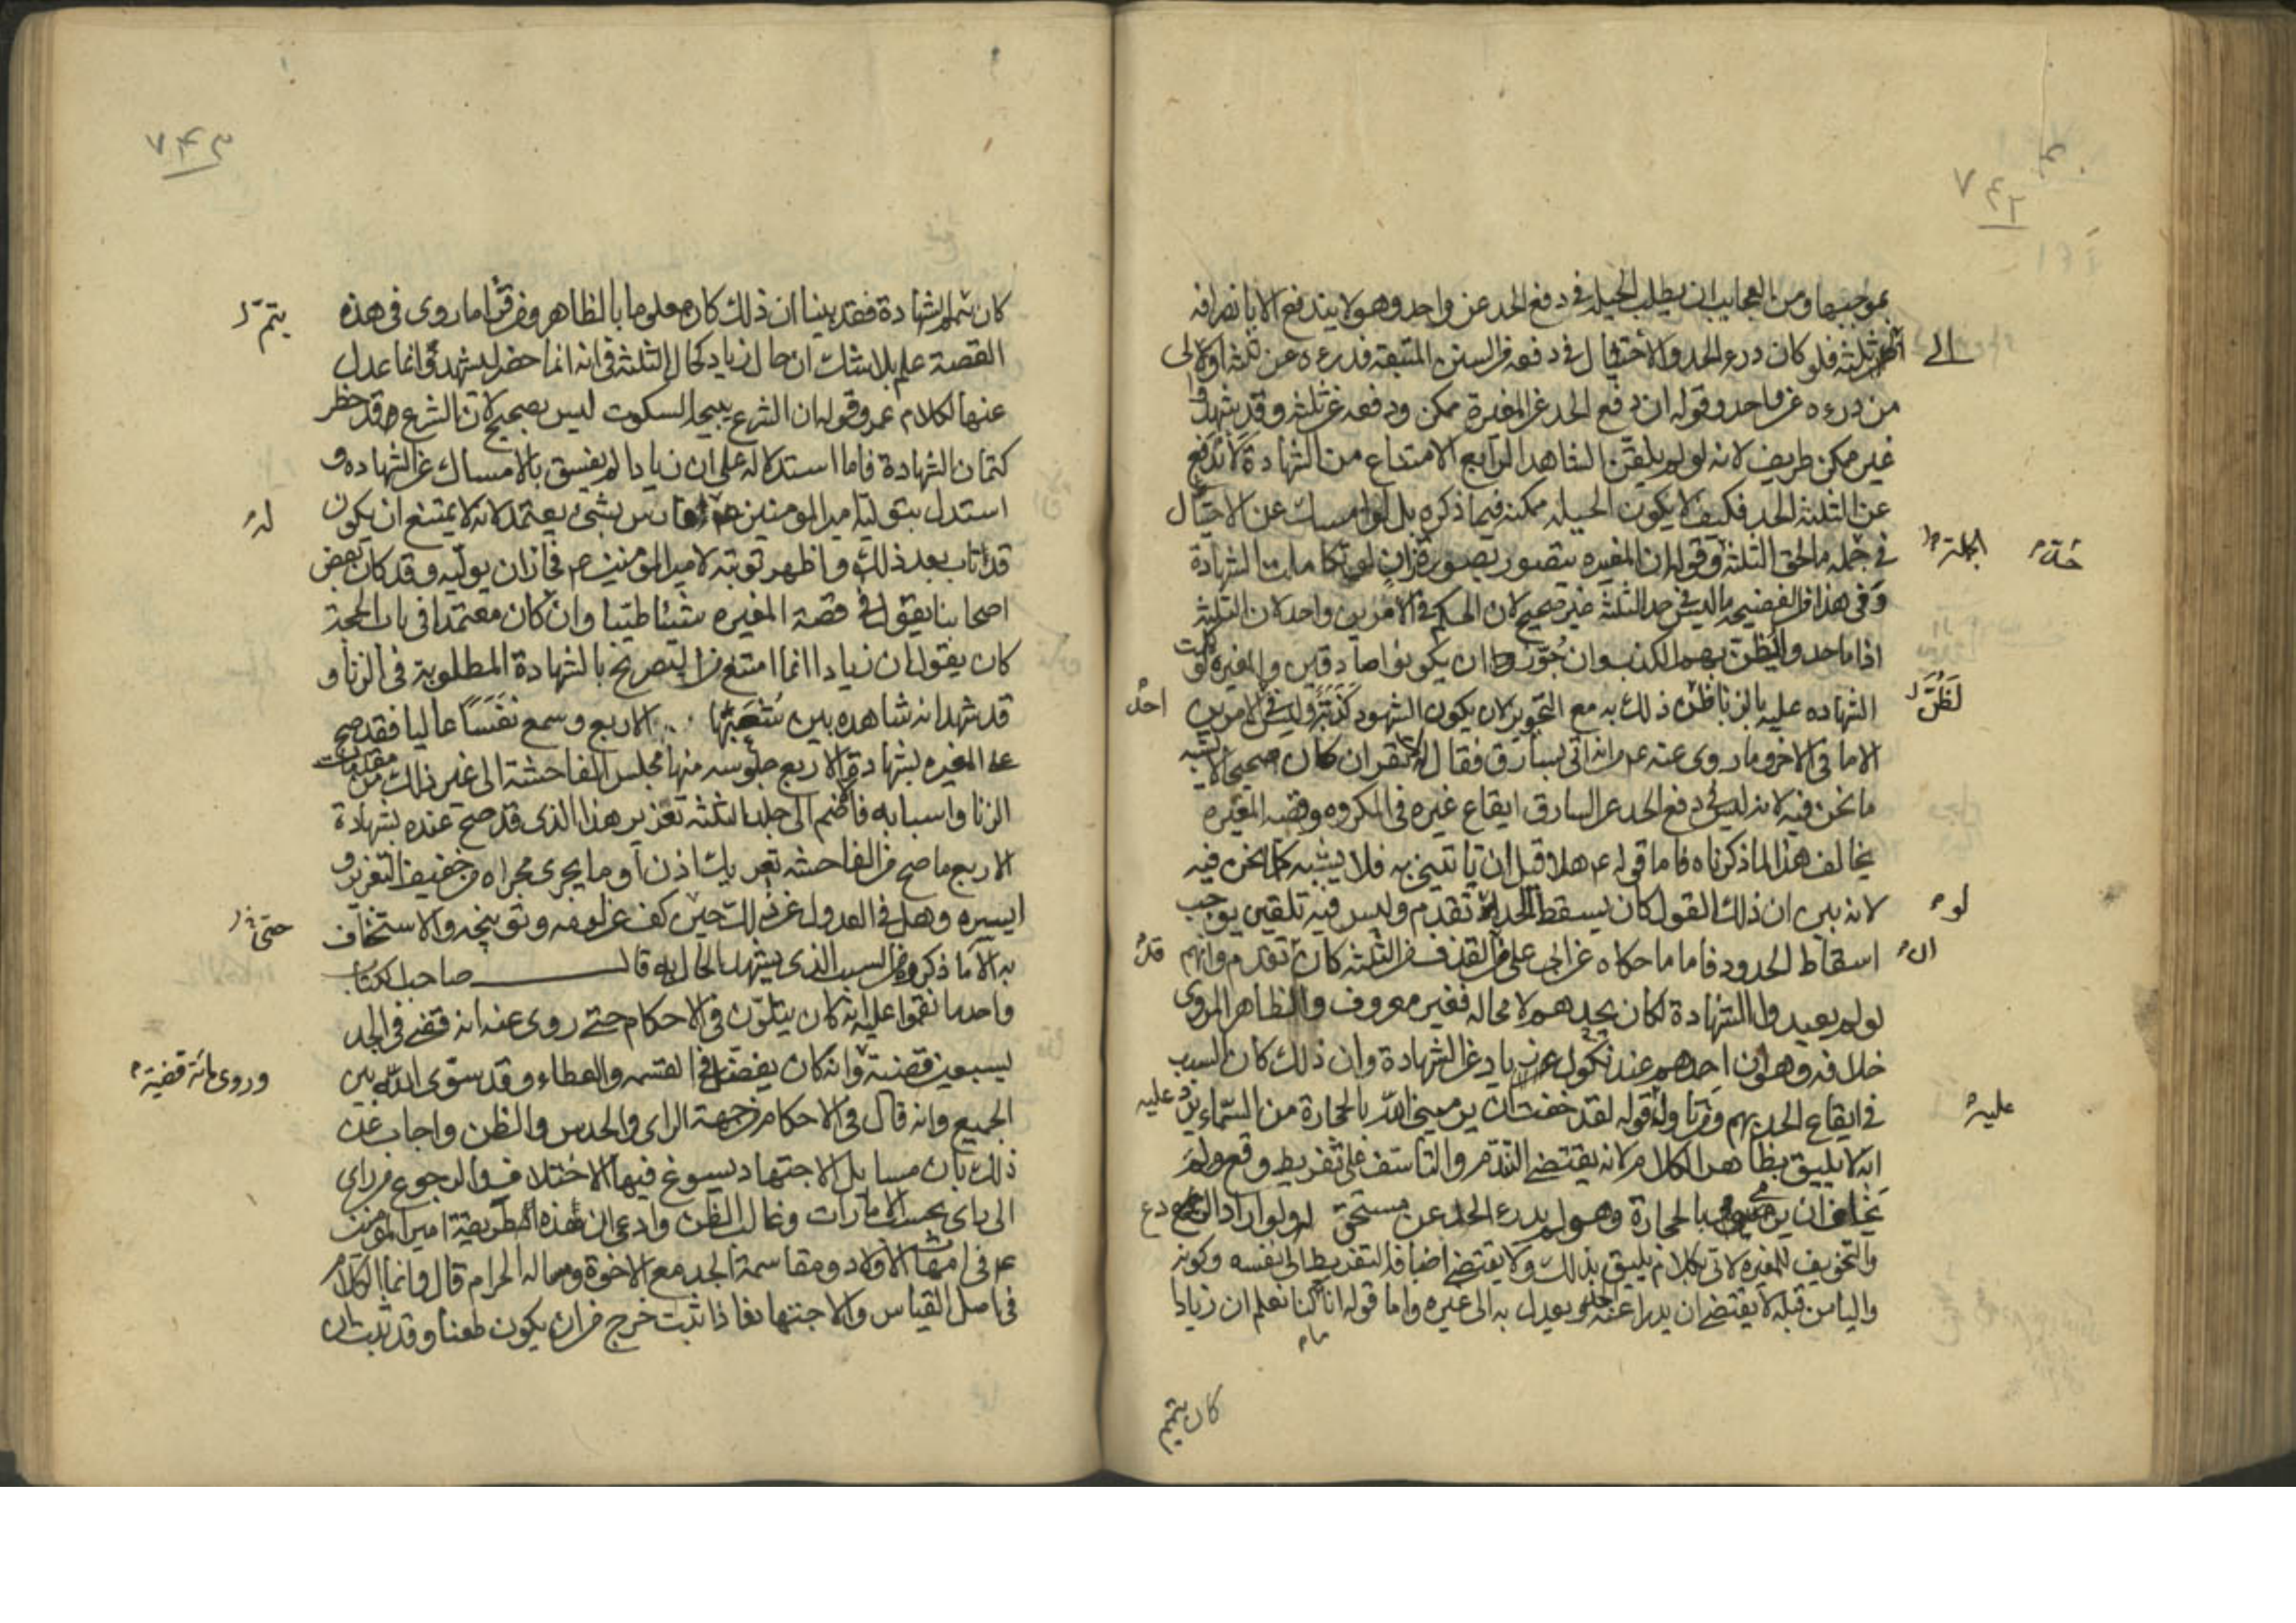 بموجبها ومن العجايب ان يطلب الحيلة في دفع الحد عن واحد وهو لا يندفع الا بانصرافه
الى ثلثة فلو كان درء الحد والاحتيال في دفعه من السنن المتبعة فدرءه عن ثلثة اولى
من درءه عن واحد وقوله ان دفع الحد عن المغيرة ممكن ودفعه عن ثلثة وقد شهدوا
غير ممكن طريف لانه لو لم يلقن الشاهد الرابع الامتناع من الشهادة لاندفع
عن الثلثة الحد فكيف لا يكون الحيلة ممكنة فيما ذكره بل لو امسك عن الاحتيال
في جملة ما لحق الثلثة وقوله ان المغيرة يتصور بصورة زان لو تكاملت الشهادة
وفي هذا من الفضيحة ما ليس في حد الثلثة غير صحيح لان الحكم في الامرين واحد لان الثلثة
اذا ما حدوا يظن بهم الكذب وان جوز ان يكونوا صادقين والمغيرة لو كملت
الشهادة عليه بالزنا ظن ذلك به مع التجويز لان يكون الشهود كذبة وليس في الامرين
الا ما في الاخر وما روى عنه عم انه اتى بسارق فقال له لا تقر ان كان صحيحا لا يشبه
ما نحن فيه لانه ليس في دفع الحد عن السارق ايقاع غيره في المكروه وقصة المغيرة
يخالف هذا لما ذكرناه فاما قوله عم هلا قبل ان تاتيني به فلا يشبه كما نحن فيه
لانه بين ان ذلك القول كان يسقط الحد لو تقدم وليس فيه تلقين يوجب
اسقاط الحدود فاما ما حكاه عن ابي علي من القذف من الثلثة كان تقدم وانهم
لو لم يعيدوا الشهادة لكان يحدهم لا محالة فغير معروف والظاهر المروى
خلافه وهو ان احدهم عند نكول زياد عن الشهادة وان ذلك كان السبب
في ايقاع الحد بهم وتاوله قوله لقد خفت ان يرميني الله بالحجارة من السماء
لا يليق بظاهر الكلام لانه يقتضي التندم والتاسف على تفريط وقع ولم
يخاف ان يرمى بالحجارة وهو لم يدرء الحد عن مستحق له ولو اراد الردع
والتخويف للمغيرة لاتى بكلام يليق بذلك ولا يقتضي اضافة التفريط الى نفسه وكونه
واليا من قبله لا يقتضي ان يدرا عنه الحد ويعدل به الى غيره واما قوله انا ما كنا نعلم ان زيادا
الى
الجملة
حته
لظن
احد
لو
ان
قد
عليه
كان يتمم
كان يتمم الشهادة فقد بينا ان ذلك كان معلوما بالظاهر ومن قرا ما روى في هذه
القصة علم بلا شك ان حال زياد كحال الثلثة في انه انما حضر ليشهد وانما عدل
عنها لكلام عمر وقوله ان الشرع يبيح السكوت ليس بصحيح لان الشرع قد حظر
كتمان الشهادة فاما استدلاله على ان زيادا لم يفسق بالامساك عن الشهادة و
استدل بتولية امير المومنين عم فارس بشيء يعتمد لانه لا يمتنع ان يكون
قد تاب بعد ذلك واظهر توبته لامير المؤمنين عم فجاز ان يوليه وقد كان بعض
اصحابنا يقول في قصة المغيرة شيئا طيبا وان كان معتمدا في باب الحجة
كان يقول ان زيادا انما امتنع من التصريح بالشهادة المطلوبة في الزنا و
قد شهد انه شاهده بين شعبها الاربع وسمع نفسا عاليا فقد صح
على المغيرة بشهادة الاربع جلوسه منها مجلس الفاحشة الى غير ذلك من مقدمات
الزنا واسبابه فاضم الى جلد الثلثة تعزير هذا الذى قد صح عنده بشهادة
الاربع ما صح من الفاحشة تعريك اذن او ما يجرى مجراه من خفيف التعزير و
يسيره وهل في العدول عن ذلك حين كف عن لومه وتوبيخه والاستخفاف
به الا ما ذكروه من السبب الذى يشهد الحال به قال صاحب الكتاب
واحد ما نقموا عليه انه كان يتلون في الاحكام حتى روى عنه انه قضى في الجد
بسبعين قضية وانه كان يفضل في القسمة والعطاء وقد سوى الله بين
الجميع وانه قال في الاحكام من جهة الراى والحدس والظن واجاب عن
ذلك بان مسايل الاجتهاد يسوغ فيها الاختلاف والرجوع من راى
الى راى بحسب الامارات وغالب الظن وادعى ان هذه الطريقة امير المومنين
عم في امهات الاولاد ومقاسمة الجد مع الاخوة ومسالة الحرام قال وانما الكلام
في اصل القياس والاجتهاد فاذا ثبت خرج من ان يكون طعنا وقد ثبت ان
يتم
له
حتى
وروى مائة قضية